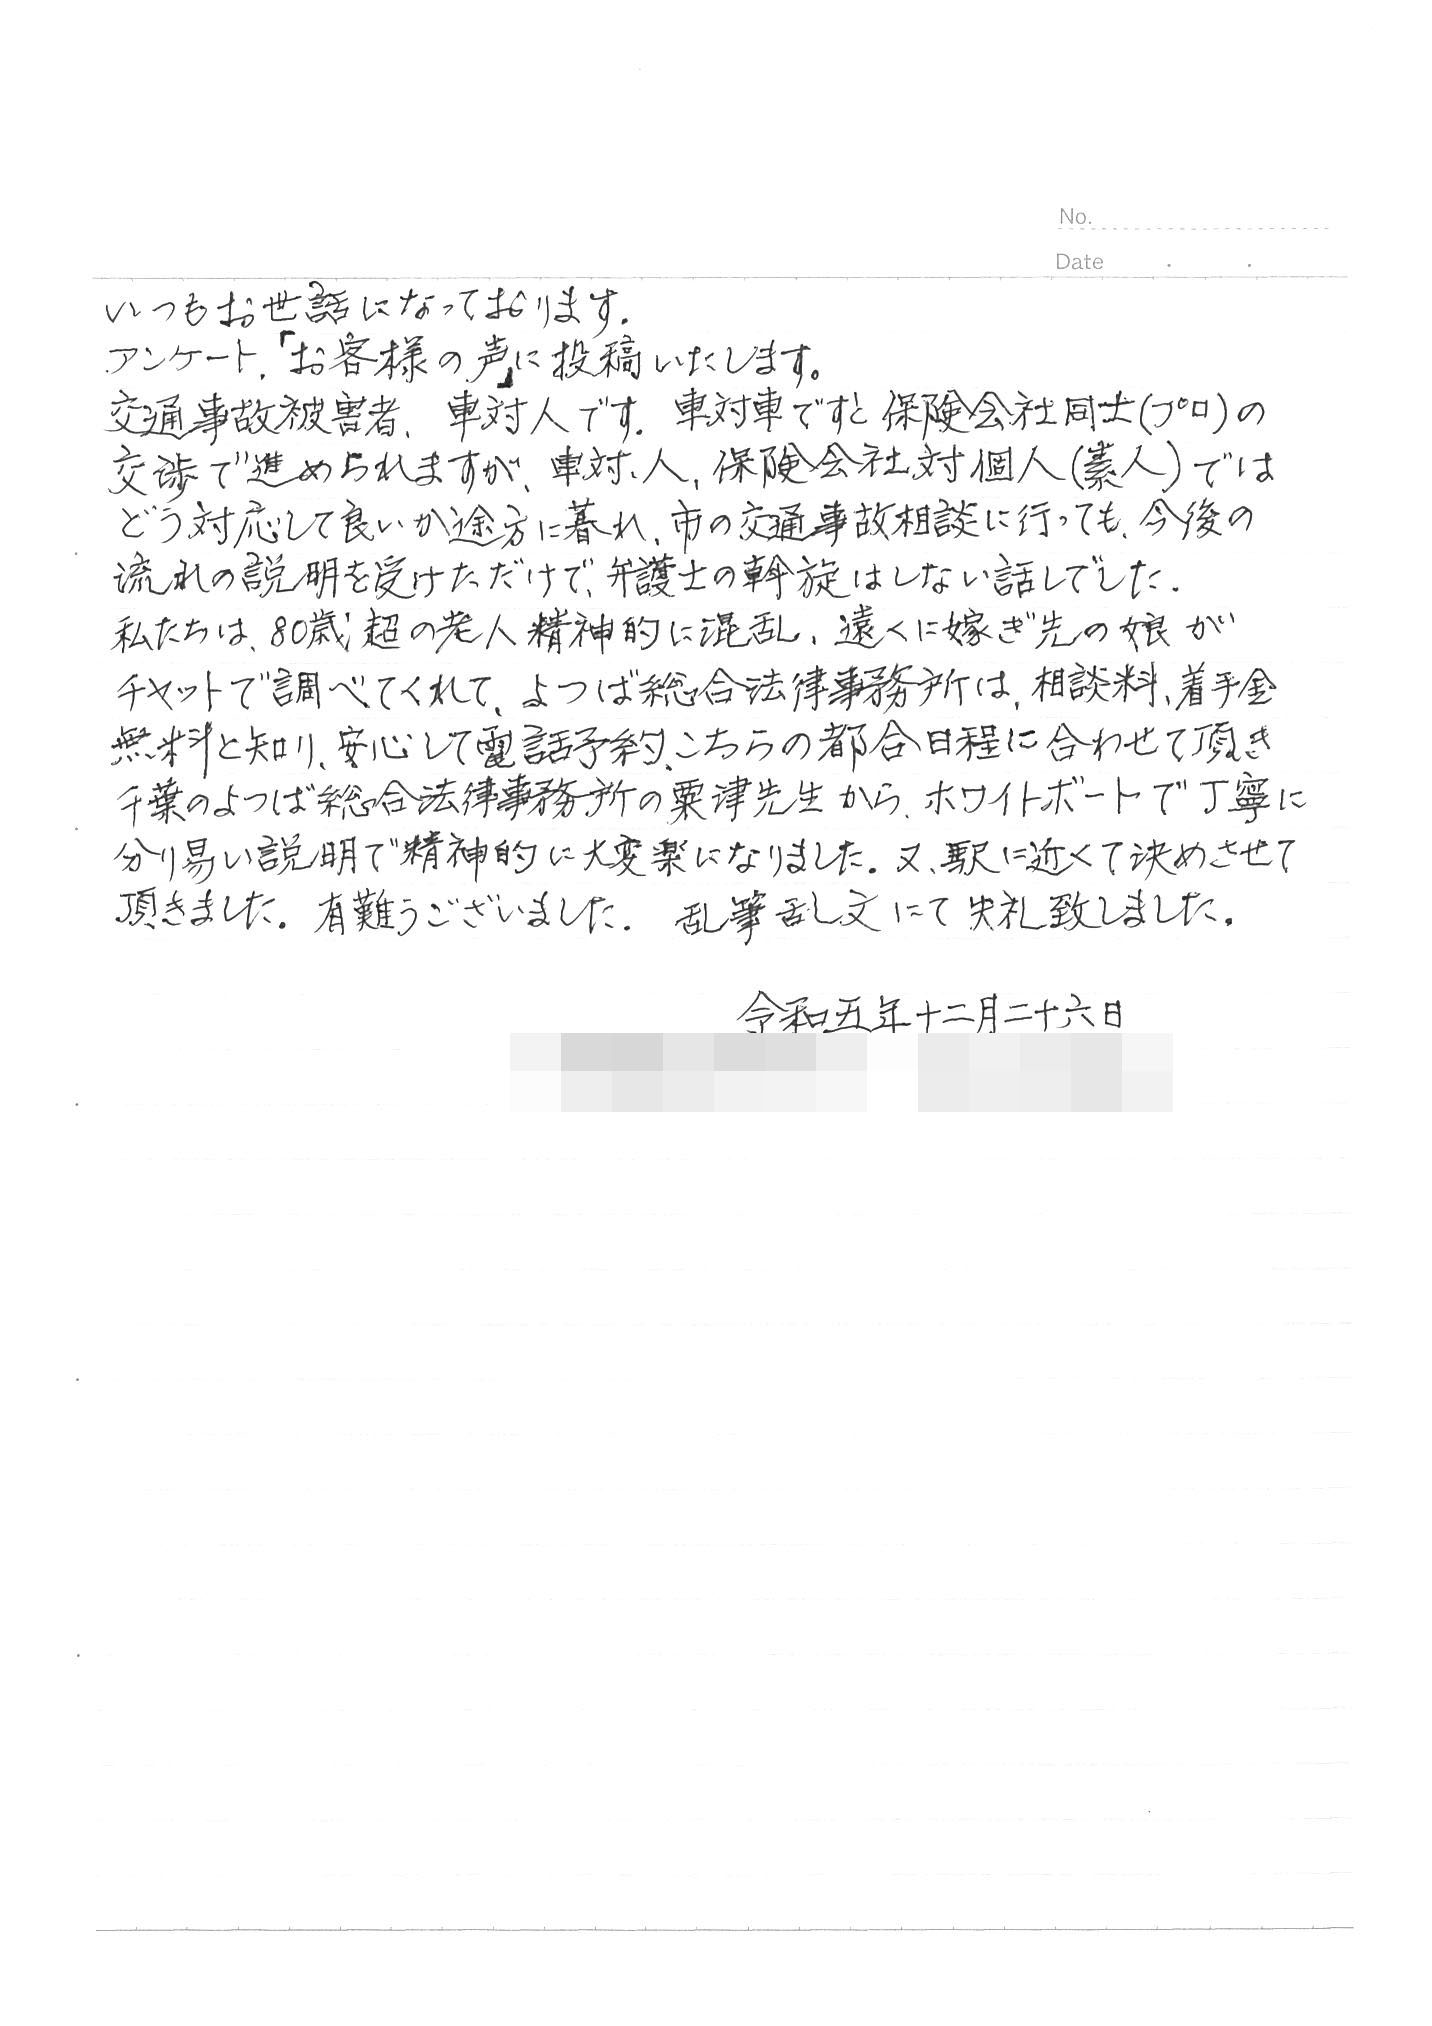 No.
Date
いつもお世話になっております.
アンケート,「お客様の声」に投稿いたします。
交通事故被害者、車対人です. 車対車ですと保険会社同士(プロ)の
交渉で進められますが、車対、人, 保険会社対個人(素人)では
どう対応して良いか途方に暮れ、市の交通事故相談に行っても、今後の
流れの説明を受けただけで、弁護士の斡旋はしない話しでした.
私たちは、80歳超の老人精神的に混乱、遠くに嫁ぎ先の娘が
チャットで調べてくれて、よつば総合法律事務所は, 相談料、着手金
無料と知り、安心して電話予約、こちらの都合日程に合わせて頂き
千葉のよつば総合法律事務所の粟津先生から、ホワイトボートで丁寧に
分り易い説明で精神的に大変楽になりました。又、駅に近くて決めさせて
頂きました。有難うございました. 乱筆乱し文にて失礼致しました。
令和五年十二月二十六日